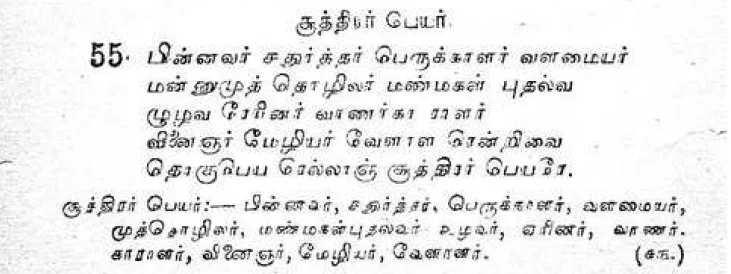 சூத்திரர் பெயர்.
55. பின்னவர் சதுர்த்தர் பெருக்காளர் வளமையர்
மன்னுமுத் தொழிலர் மண்மகள் புதல்வ
ழுழவ ரேரினர் வாணர்கா ராளர்
வினைஞர் மேழியர் வேளாள ரென்றிவை
தொகுபெய ரெல்லாஞ் சூத்திரர் பெயரே.
சூத்திரர் பெயர்:— பின்னவர், சதுர்த்தர், பெருக்காளர், வளமையர்,
முத்தொழிலர், மண்மகள்புதல்வர் உழவர், ஏரினர், வாணர்.
காராளர், வினைஞர், மேழியர், வேளாளர்.